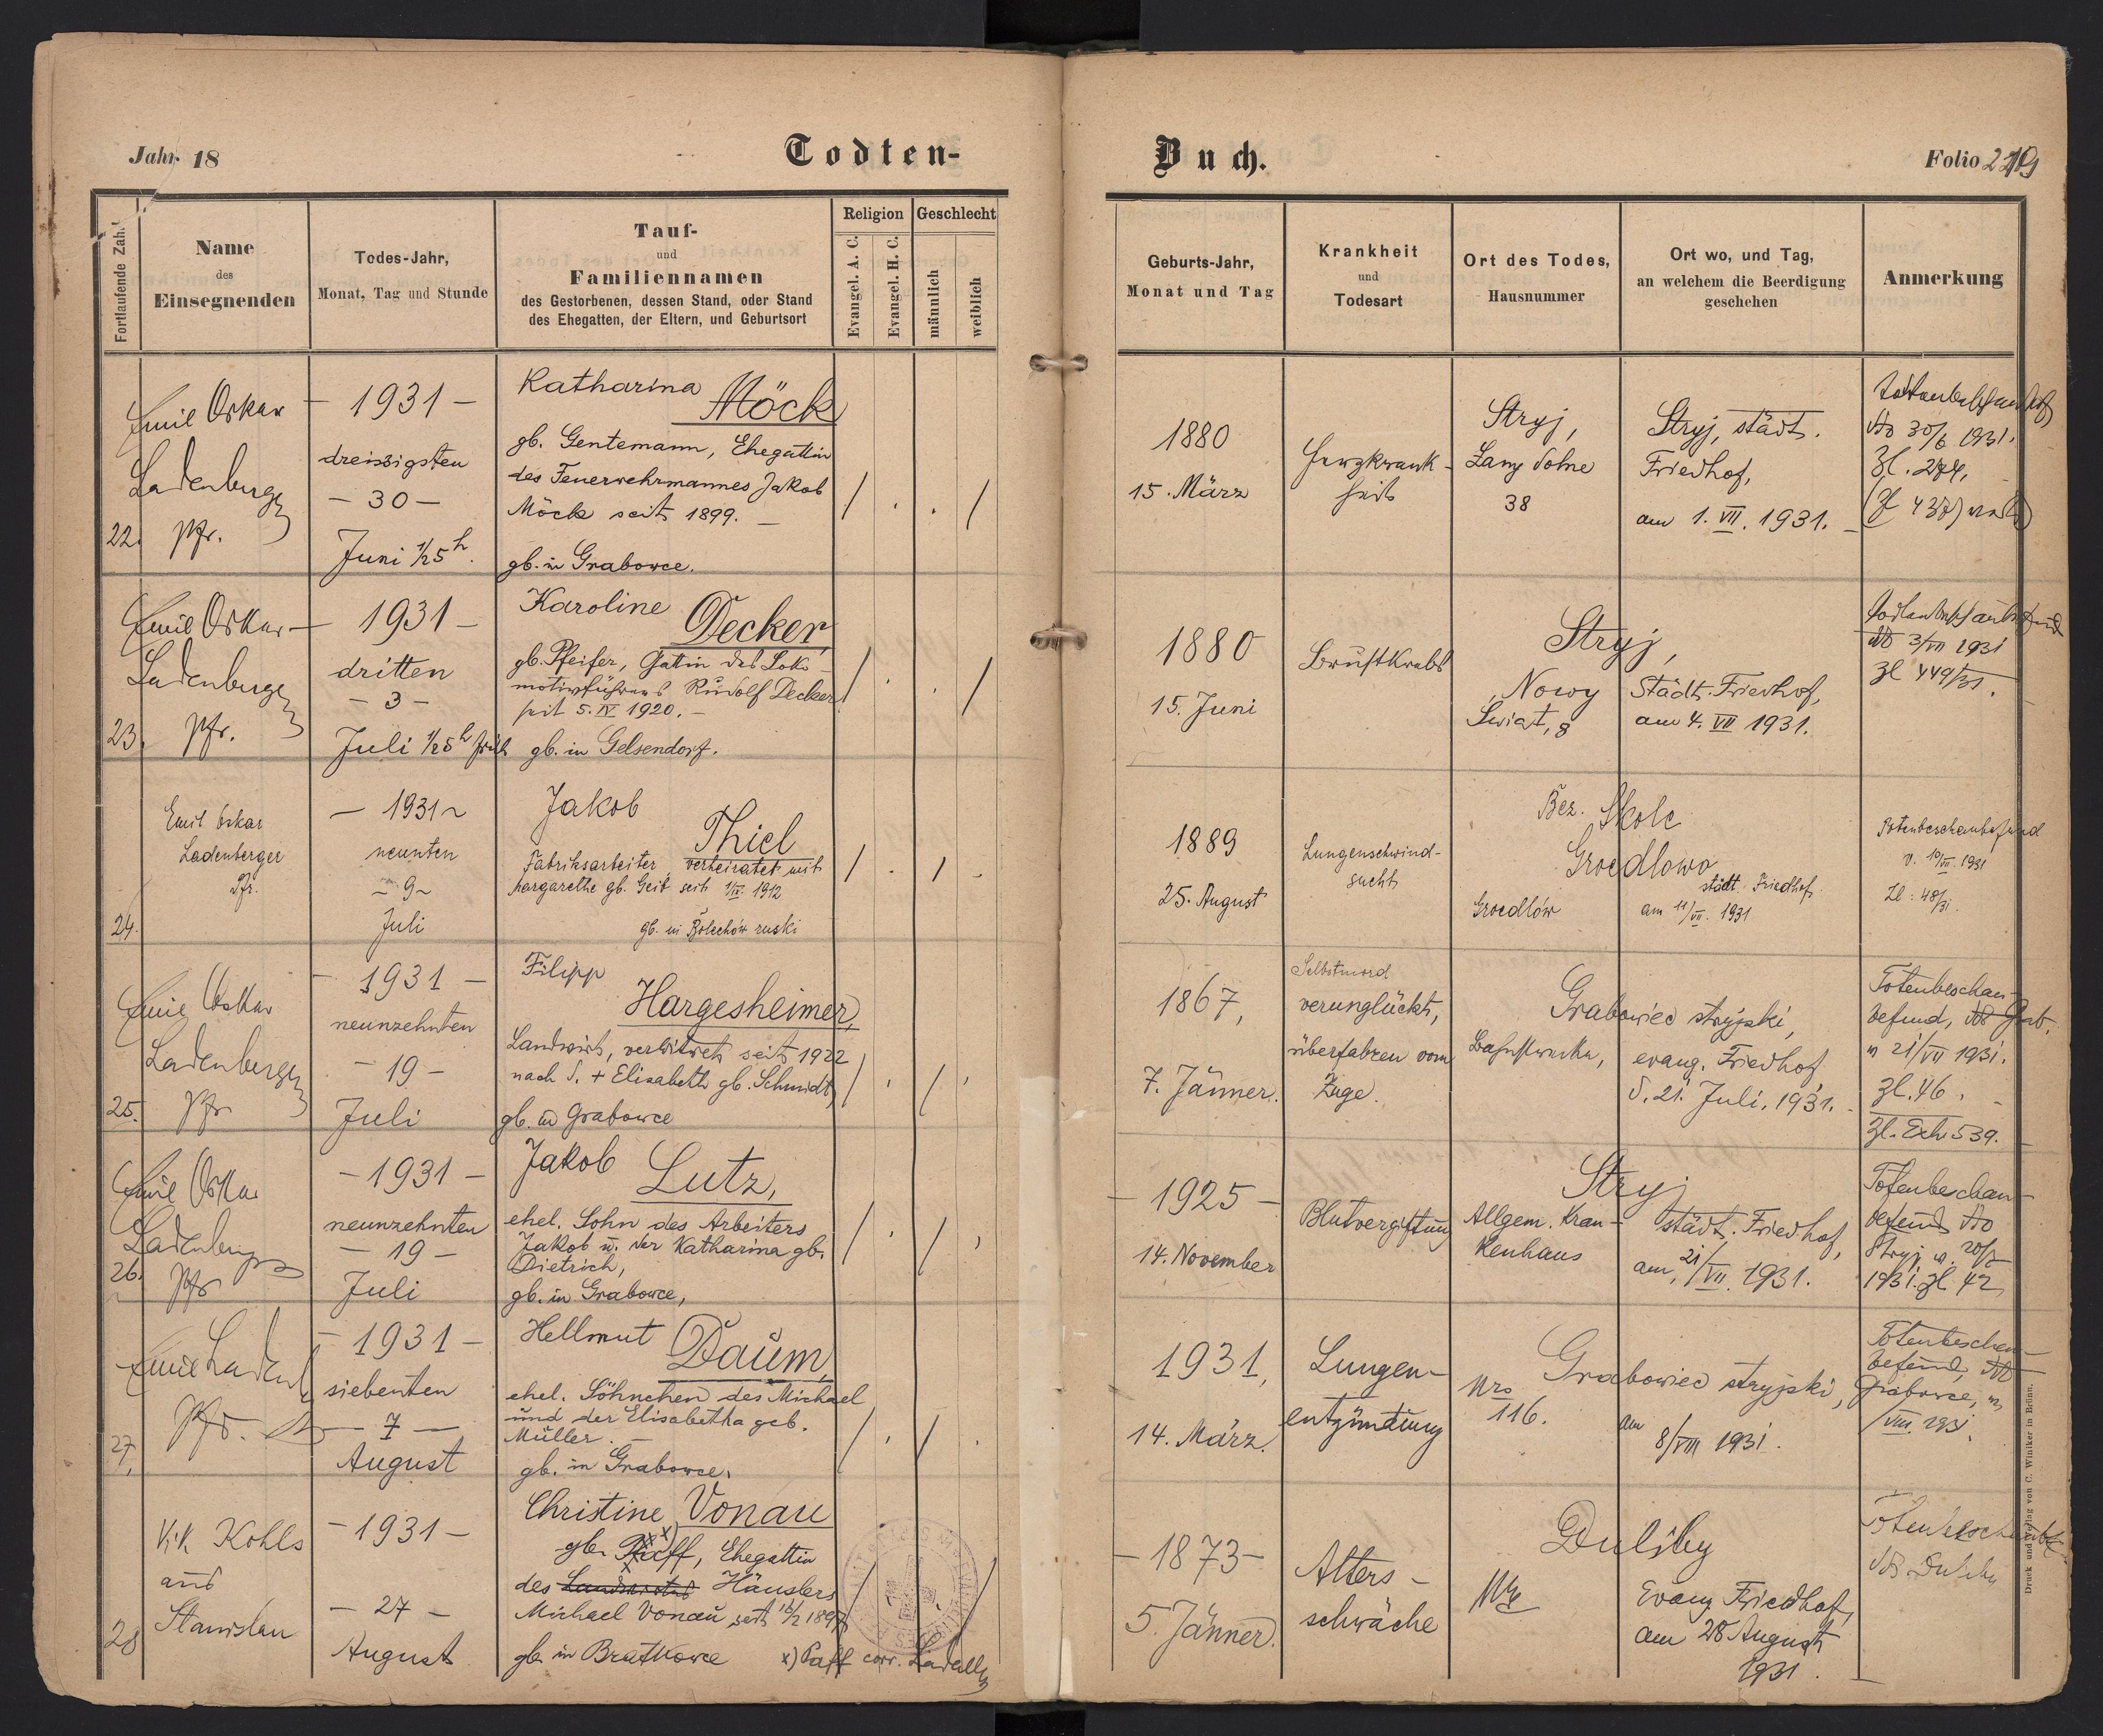 Jahr 18
Todten-
Fortlaufende Zahl
Name
des
Einsegnenden
Todes-Jahr,
Monat, Tag und Stunde
Tauf-
und
Familiennamen
des Gestorbenen, dessen Stand, oder Stand
des Ehegatten, der Eltern, und Geburtsort
Religion
Evangel. A. C.
Evangel. H. C.
Geschlecht
männlich
weiblich
22.
Emil Oskar
Ladenberger
Pfr.
- 1931 -
dreissigsten
- 30 -
Juni ½5 h.
Katharina
Möck
gb. Gentemann, Ehegattin
des Feuerwehrmannes Jakob
Möck seit 1899. -
gb. in Grabowce.
23.
Emil Oskar
Ladenberger
Pfr.
- 1931 -
dritten
- 3 -
Juli ½5 h früh
Karoline
Decker,
gb. Pfeifer, Gattin des Loko-
motivführers Rudolf Decker
seit 5. IV 1920. -
gb. in Gelsendorf.
24.
Emil Oskar
Ladenberger
Pfr.
- 1931 ~
neunten
- 9 ~
Juli
Jakob
Thiel
Fabriksarbeiter, verheiratet mit
Margarethe gb. Geib seit 1/IX 1912
gb. in Bolechów ruski
25.
Emil Oskar
Ladenberger
Pfr
- 1931 -
neunzehnten
- 19 -
Juli
Filipp
Hargesheimer,
Landwirt, verwitwet seit 1922
nach d. + Elisabeth gb. Schmidt,
gb. in Grabowce
26.
Emil Oskar
Ladenberger
Pfr
- 1931 -
neunzehnten
- 19 -
Juli
Jakob
Lutz,
ehel. Sohn des Arbeiters
Jakob u. der Katharina gb.
Dietrich,
gb. in Grabowce,
27.
Emil Ladenb
Pfr.
- 1931 -
siebenten
- 7 -
August
Hellmut
Daum,
ehel. Söhnchen des Michael
und der Elisabetha geb.
Müller. -
gb. in Grabowce.
28
Vik Kohls
aus
Stanislau
- 1931 -
- 27 -
August
Christine Vonau
gb. Pfaff, x) Ehegattin
des Landwirtes Häuslers
Michael Vonau, seit 16/2 1897
gb. in Bratkowce
x) Paff corr. Ladenb
Buch.
Folio 219
Geburts-Jahr,
Monat und Tag
Krankheit
und
Todesart
Ort des Todes,
Hausnummer
Ort wo, und Tag,
an welchem die Beerdigung
geschehen
Anmerkung
1880
15. März
Herzkrank-
heit
Stryj,
Łany dolne
38
Stryj, städt.
Friedhof,
am 1. VII. 1931. -
Totenbeschaubfd
dto 30/6 1931.
Zl. 274,
1880
15. Juni
Brustkrebs
Stryj,
Nowy
Świat, 8
Städt. Friedhof,
am 4. VII 1931.
Totenbeschaubefund
dto 3/VII 1931
Zl 449/31.
1889
25. August
Lungenschwind-
sucht
Bez. Skole
Groedlowo
Groedlów
städt. Friedhof
am 11/VII. 1931
Totenbeschaubefund
v. 10/VII. 1931
Zl: 48/31.
1867,
7. Jänner.
Selbstmord
verunglückt,
überfahren vom
Zuge.
Grabowiec stryjski,
Bahnstrecke,
evang. Friedhof
d. 21. Juli, 1931. -
Totenbeschau-
befund, dto Grab.
v 21/VII 1931.
Zl. 46. -
Zl. Exh 539.
- 1925 -
14. November
Blutvergiftung
Stryj
Allgem. Kran-
kenhaus
städt. Friedhof,
am 21/VII 1931.
Totenbeschau-
befund dto
Stryj v. 20/7
1931. Zl 42
1931,
14. März.
Lungen-
entzündung
Grabowiec stryjski,
Nro
116.
am
8/VIII 1931.
Totenbeschau-
befund, dto
Grabowce, v
/VIII. 1931.
- 1873 -
5. Jänner.
Alters-
schwäche
Duliby
Evang Friedhof,
am 28 August
1931.
Totenbeschaubf
dto Duliby
Druck und Verlag von C. Winiker in Brünn.